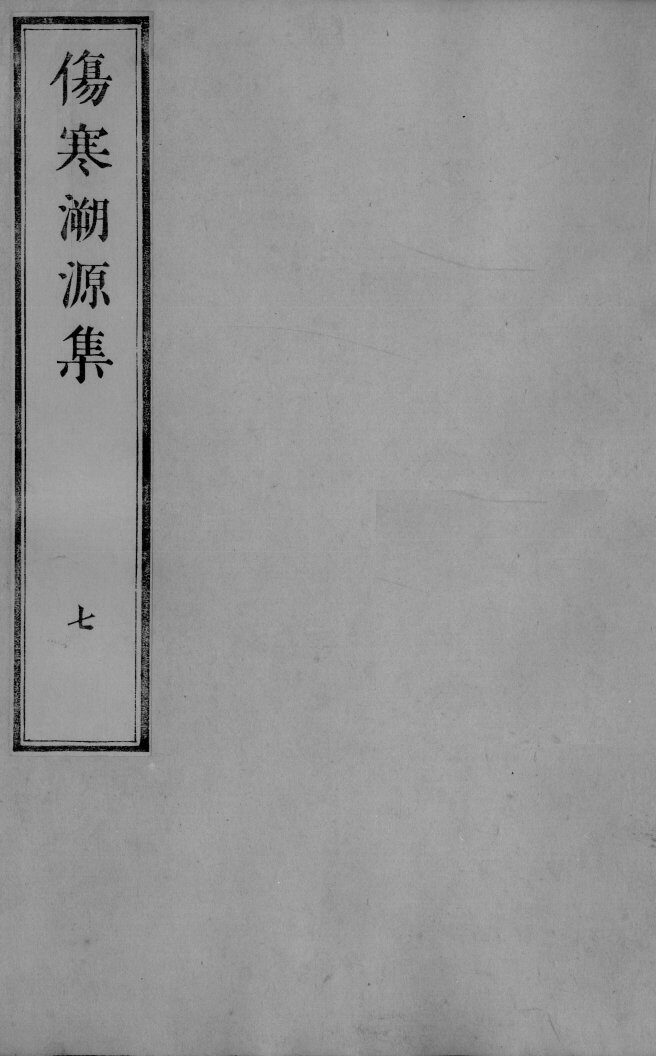 傷寒溯源集
七